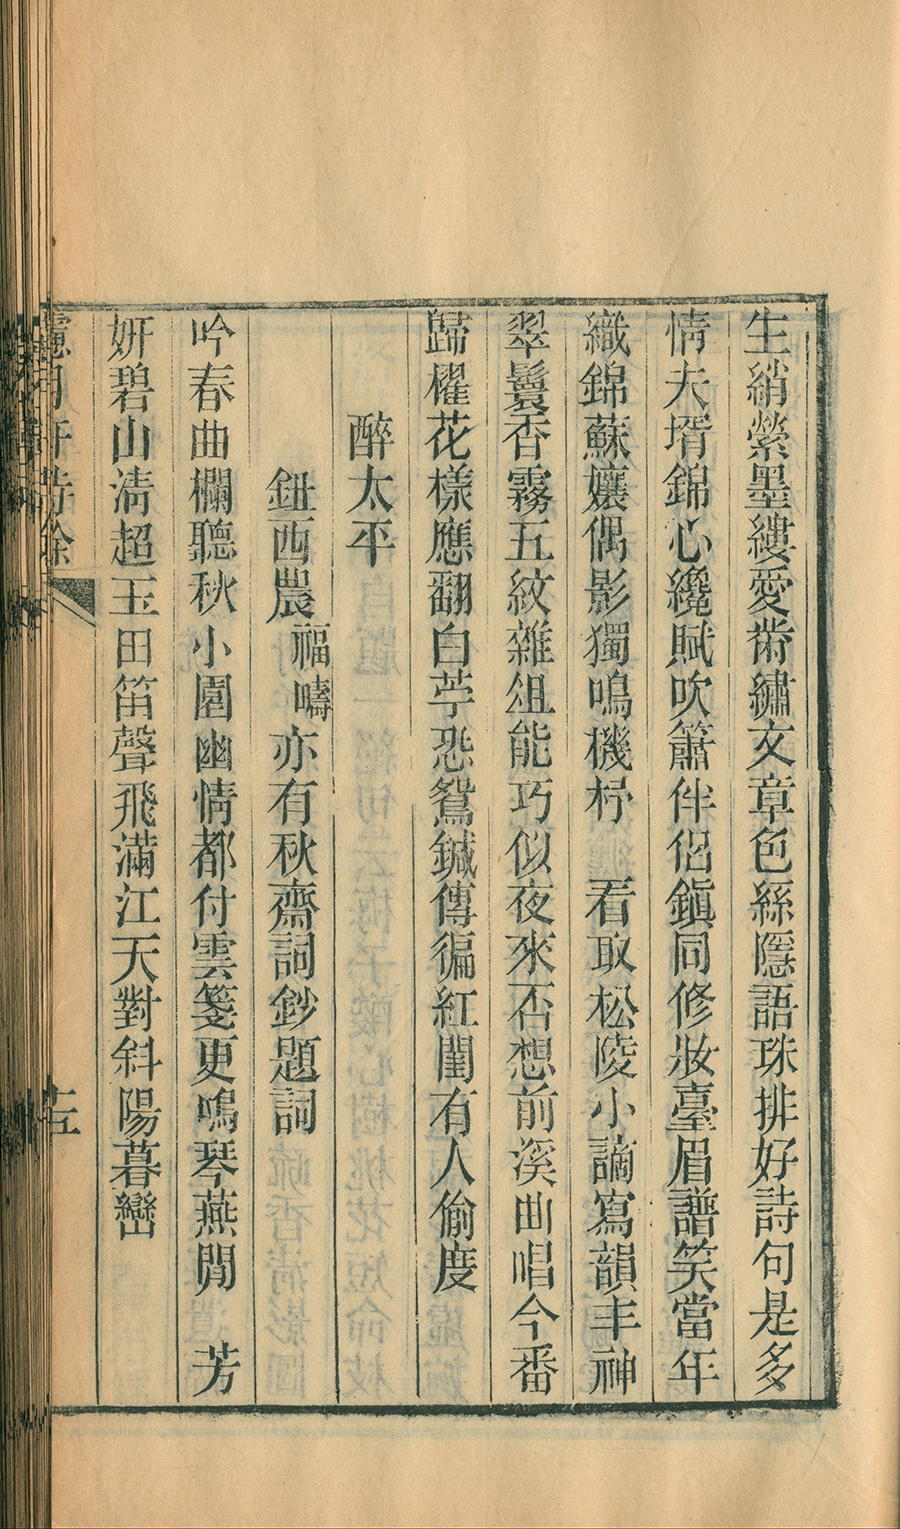 生綃縈墨縷愛黹繡文章色絲隱語珠排好詩句是多
情夫壻錦心纔賦吹簫伴侶鎭同修妝臺眉譜笑當年
織錦蘇孃偶影獨鳴機杼　看取松陵小謫寫韻丰神
翠鬟香霧五紋雜俎能巧似夜來否想前溪曲唱今番
歸櫂花樣應翻白苧恐鴛鍼傳徧紅閨有人偷度
醉太平
鈕西農福疇亦有秋齋詞鈔題詞
吟春曲欄聽秋小園幽情都付雲箋更鳴琴燕閒　芳
妍碧山淸超玉田笛聲飛滿江天對斜陽暮巒
月軒詩餘
十五